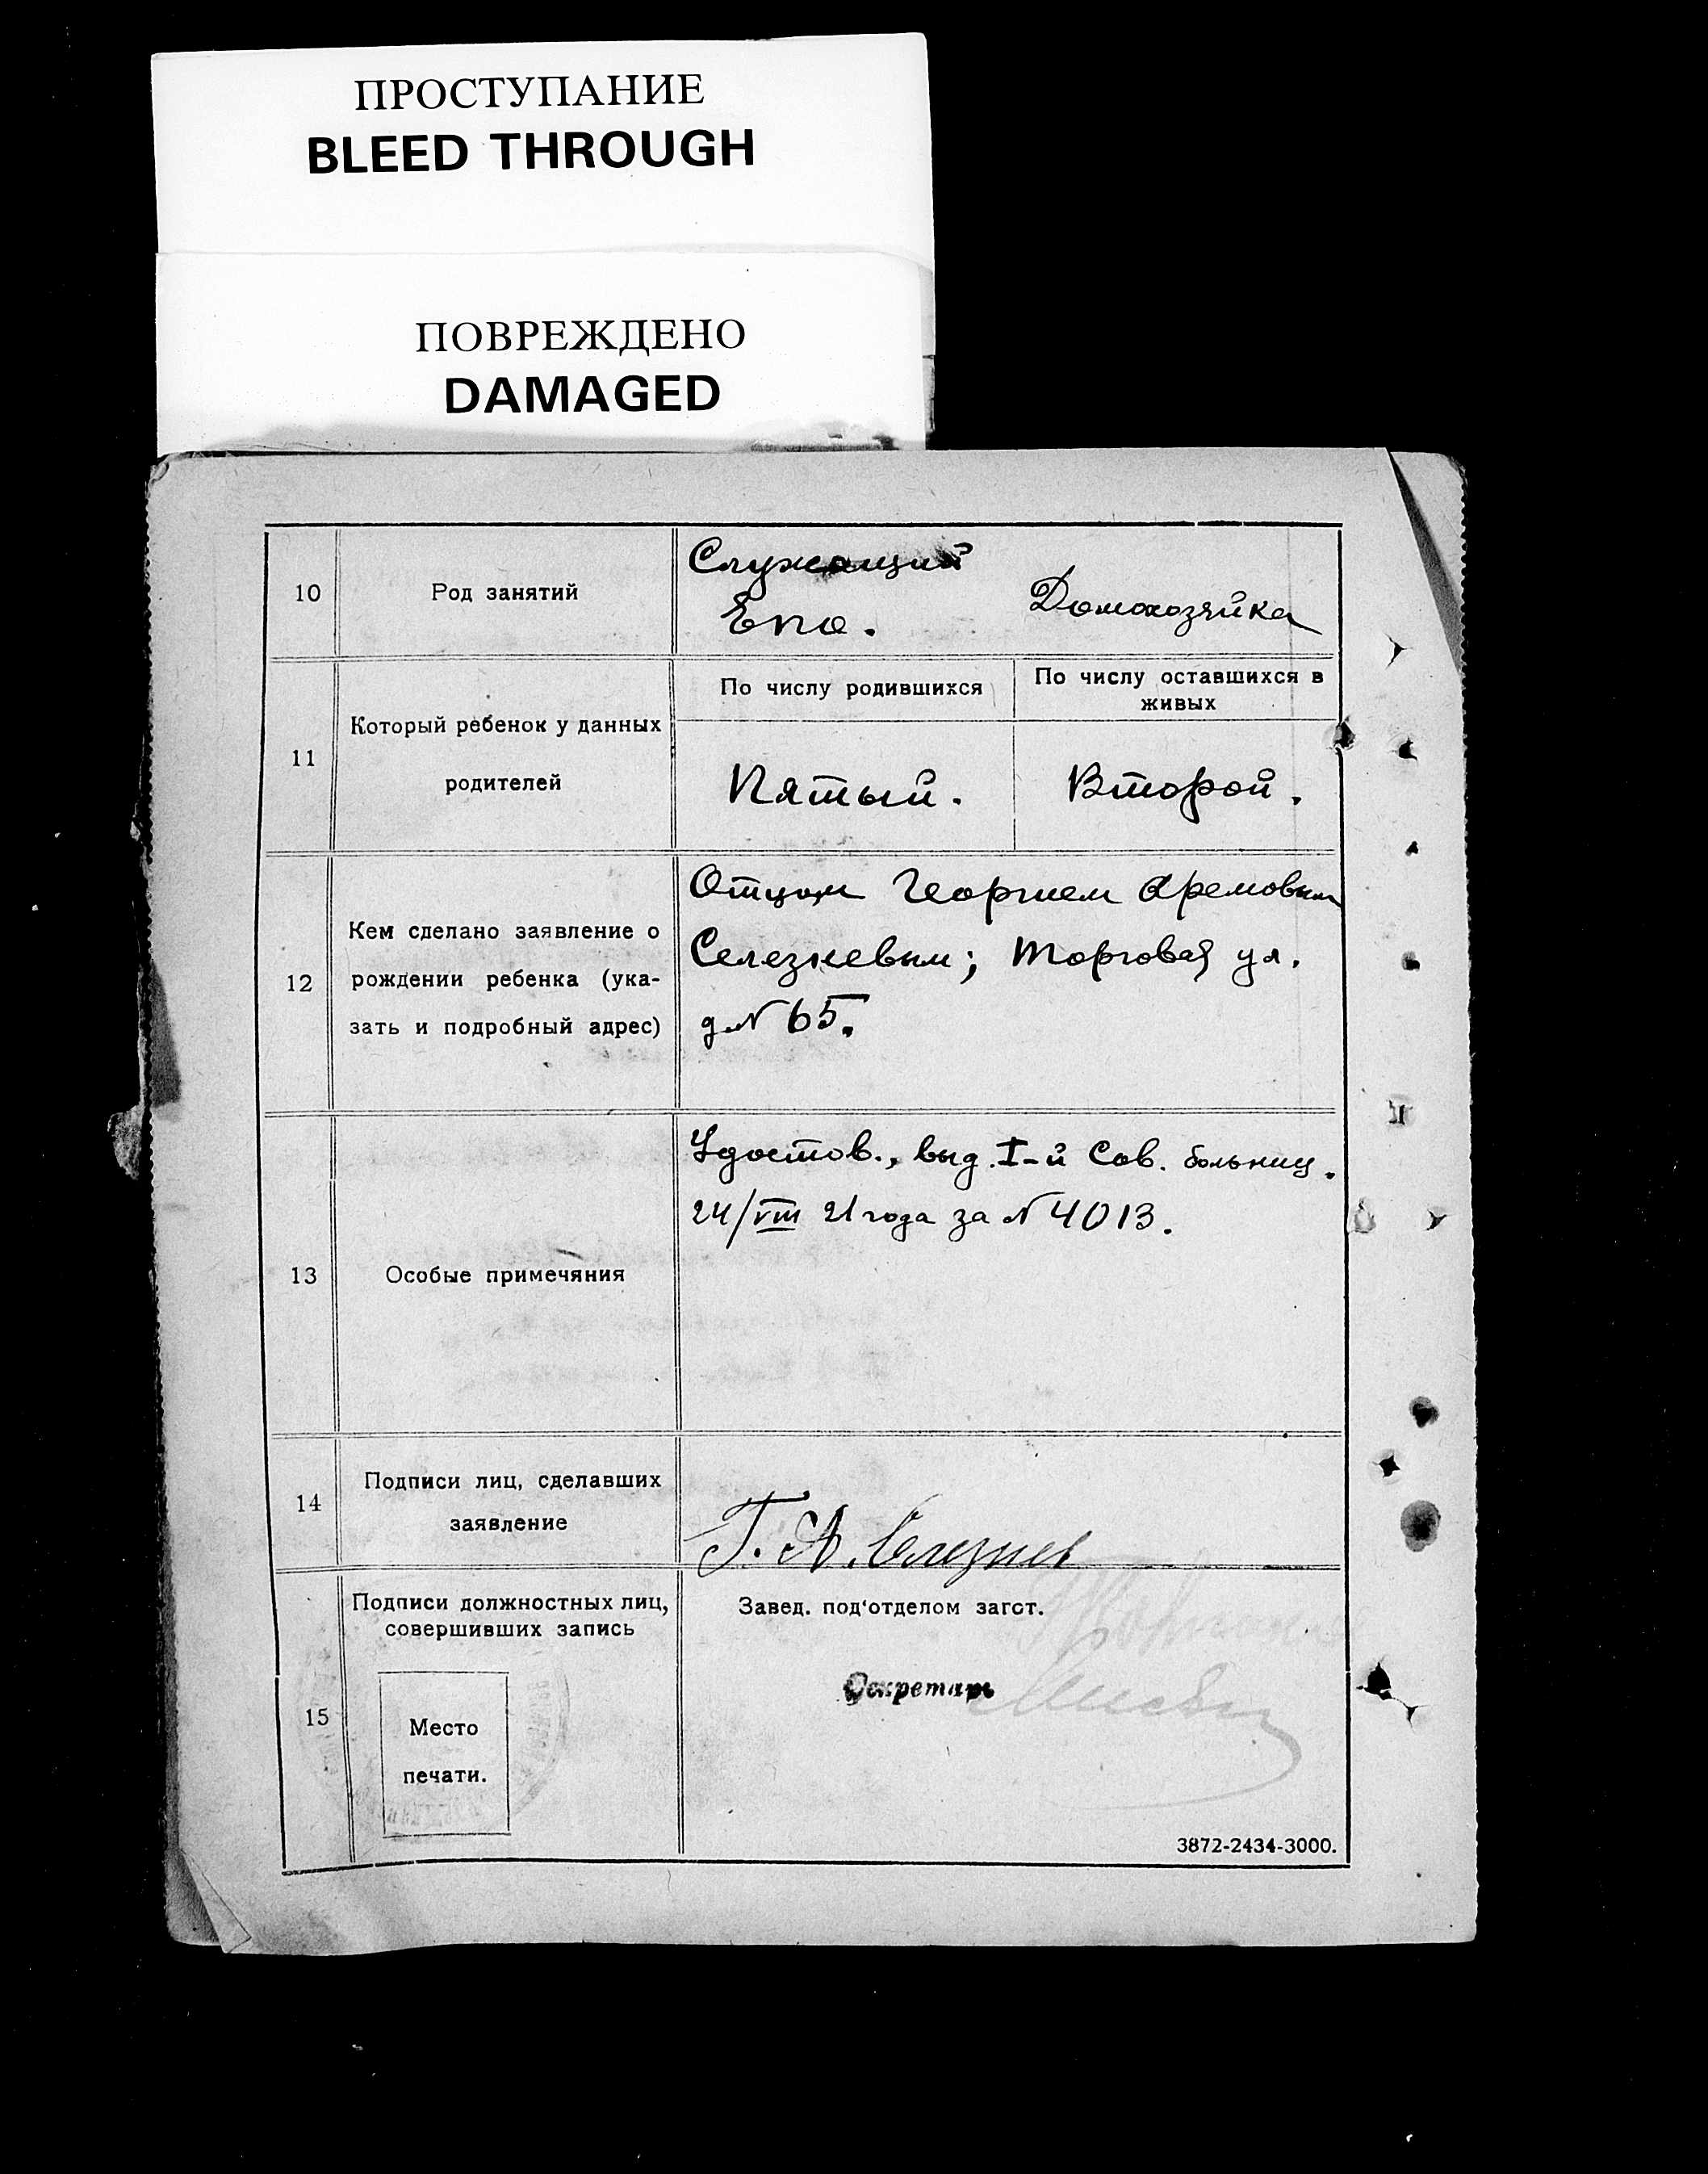 ПРОСТУПАНИЕ
BLEED THROUGH
ПОВРЕЖДЕНО
DAMAGED
10
Род занятий
Служащий
Епо.
Домохозяйка
11
Который ребенок у данных
родителей
По числу родившихся
По числу оставшихся в
живых
Пятый.
Второй.
12
Кем сделано заявление о
рождении ребенка (ука-
зать и подробный адрес)
Отцом Георгием
Селезневым; Торговая ул.
д № 65.
13
Особые примечяния
Удостов., выд. I-й Сов. больниц.
24/VIII 21 года за № 4013.
14
Подписи лиц, сделавших
заявление
Г. А. Селезнев
15
Подписи должностных лиц,
совершивших запись
Место
печати.
Завед. под'отделом загст.
Секретарь
3872-2434-3000.